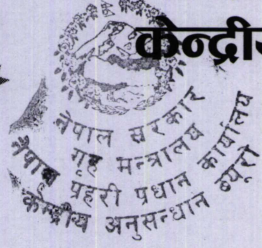 केन्द्रीय
नेपाल सरकार
गृह मन्त्रालय
नेपाल प्रहरी प्रधान कार्यालय
केन्द्रीय अनुसन्धान ब्यूरो